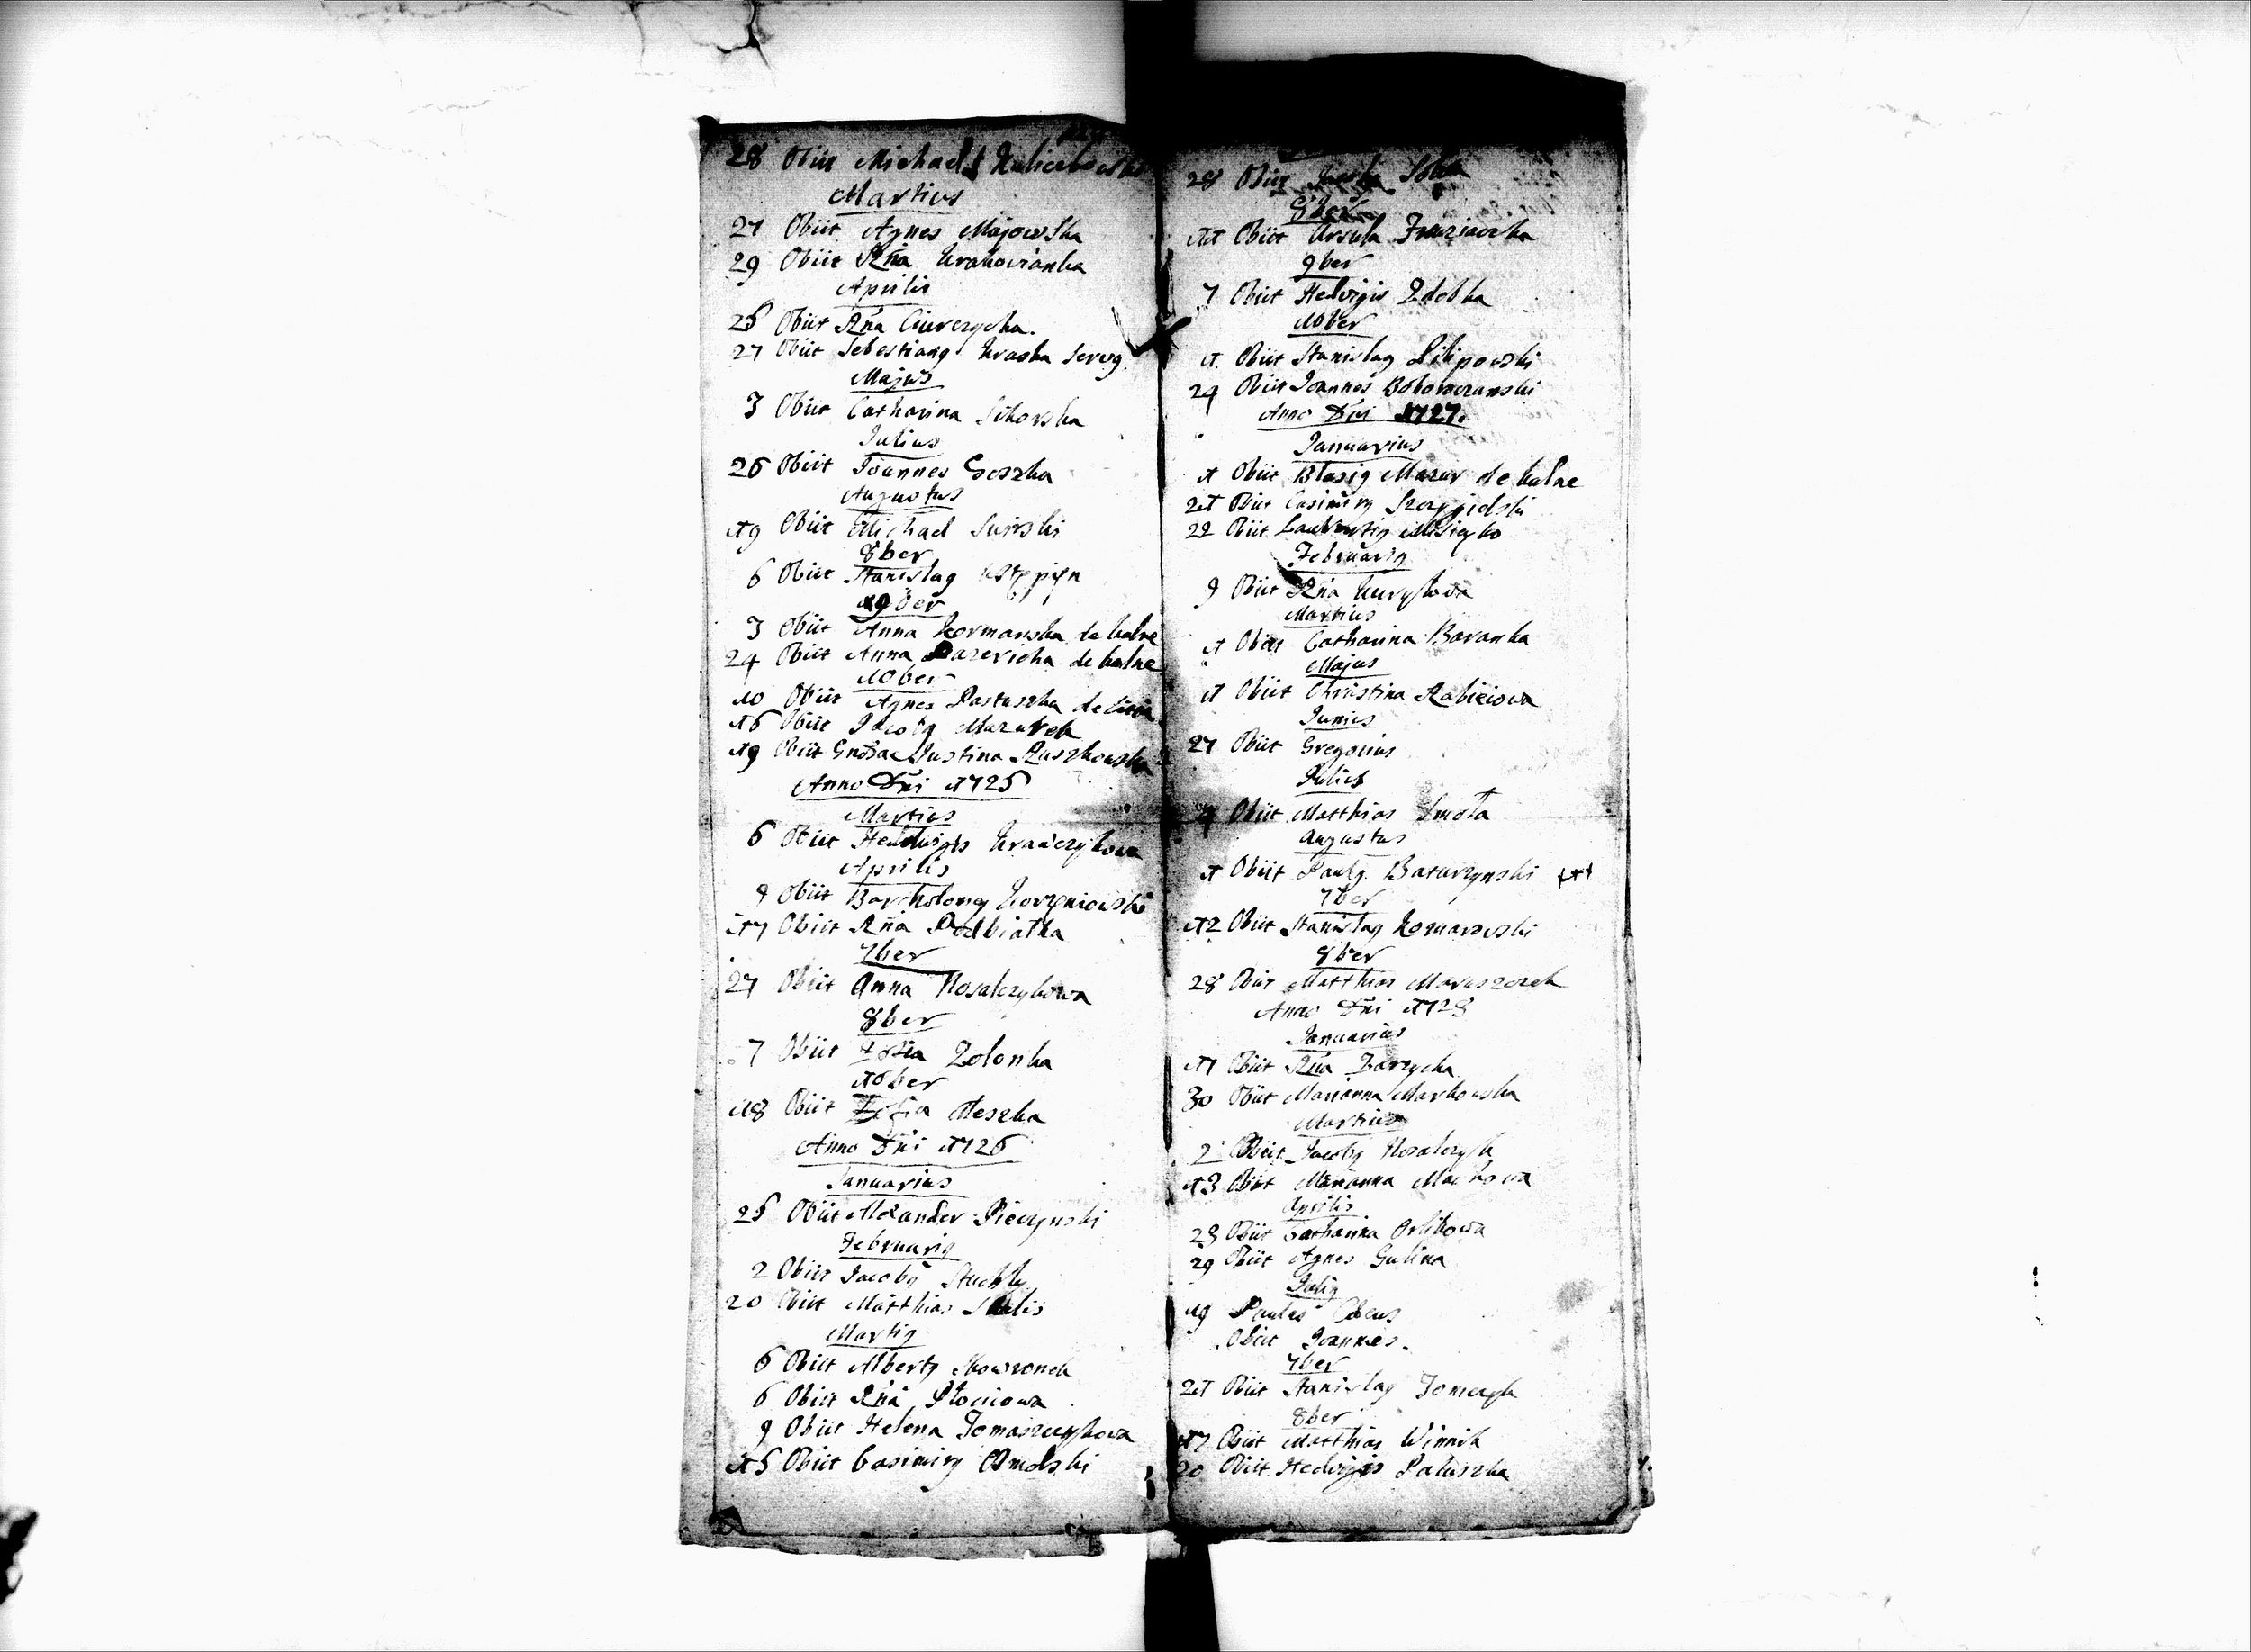 28 Obiit Michael
Martius
27 Obiit Agnes Majowska
29 Obiit Rña Krakowianka
Aprilis
25 Obiit Rña Ciurczycha.
27 Obiit Sebestiang Kraska Servg.
Majus
3 Obiit Catharina Sikorska
Julius
26 Obiit Joannes Goszka
Augustus
19 Obiit Michael
8ber
6 Obiit Stanislag
9ber
3 Obiit Anna Kormanska de balne
24 Obiit Anna de balne
10ber
10 Obiit Agnes Pastuszka
16 Obiit Jacobg Mazurek
19 Obiit Gnosa Justina Ruszkowska
Anno Dñi 1725
Martius
6 Obiit Hedwigis Krawczykowa
Aprilis
9 Obiit Bartholomg Korzniowski
17 Obiit Rña Podbiałka
7ber
27 Obiit Anna Kosalczykowa
8ber
7 Obiit Zofia Zolonka
10ber
18 Obiit Zofia Meszka
Anno Dñi 1726
Januarius
25 Obiit Alexander Pieczynski
Februarig
2 Obiit Jacobg Stuchly
20 Obiit Matthias
Martig
6 Obiit Albertg Skowronek
6 Obiit Rña Płociowa
9 Obiit Helena Tomaszczykowa
15 Obiit Casimirg
28 Obiit
8ber
11 Obiit Ursula
9ber
7 Obiit Hedvigis Zdebka
10ber
1 Obiit Stanislag Filipowski
24 Obiit Joannes
Anno Dñi 1727.
Januarius
1 Obiit Blasig Mazur de balne
21 Obiit Casimirg
22 Obiit Laurentig
Februarig
9 Obiit Rña Kurykowa
Martius
1 Obiit Catharina Baranka
Majus
1 Obiit Christina Rabieiowa
Junius
27 Obiit Gregorius
Julius
Obiit Matthias Smoła
Augustus
1 Obiit Paulg Baturzynski
7ber
12 Obiit Stanislag Komarowski
8ber
28 Obiit Matthias Maruszczak
Anno Dñi 1728
Januarius
17 Obiit Rña Zarzycka
30 Obiit Marianna Markowska
Martius
2 Obiit Jacobg Kosalczyk
13 Obiit Marianna Mackowa
Aprilis
23 Obiit Catharina Orlikowa
29 Obiit Agnes Gulina
Julig
19 Paulus
Obiit Joannes.
7ber
21 Obiit Stanislag Tomczyk
8ber
17 Obiit Matthias Winnik
20 Obiit Hedvigis Paluszka